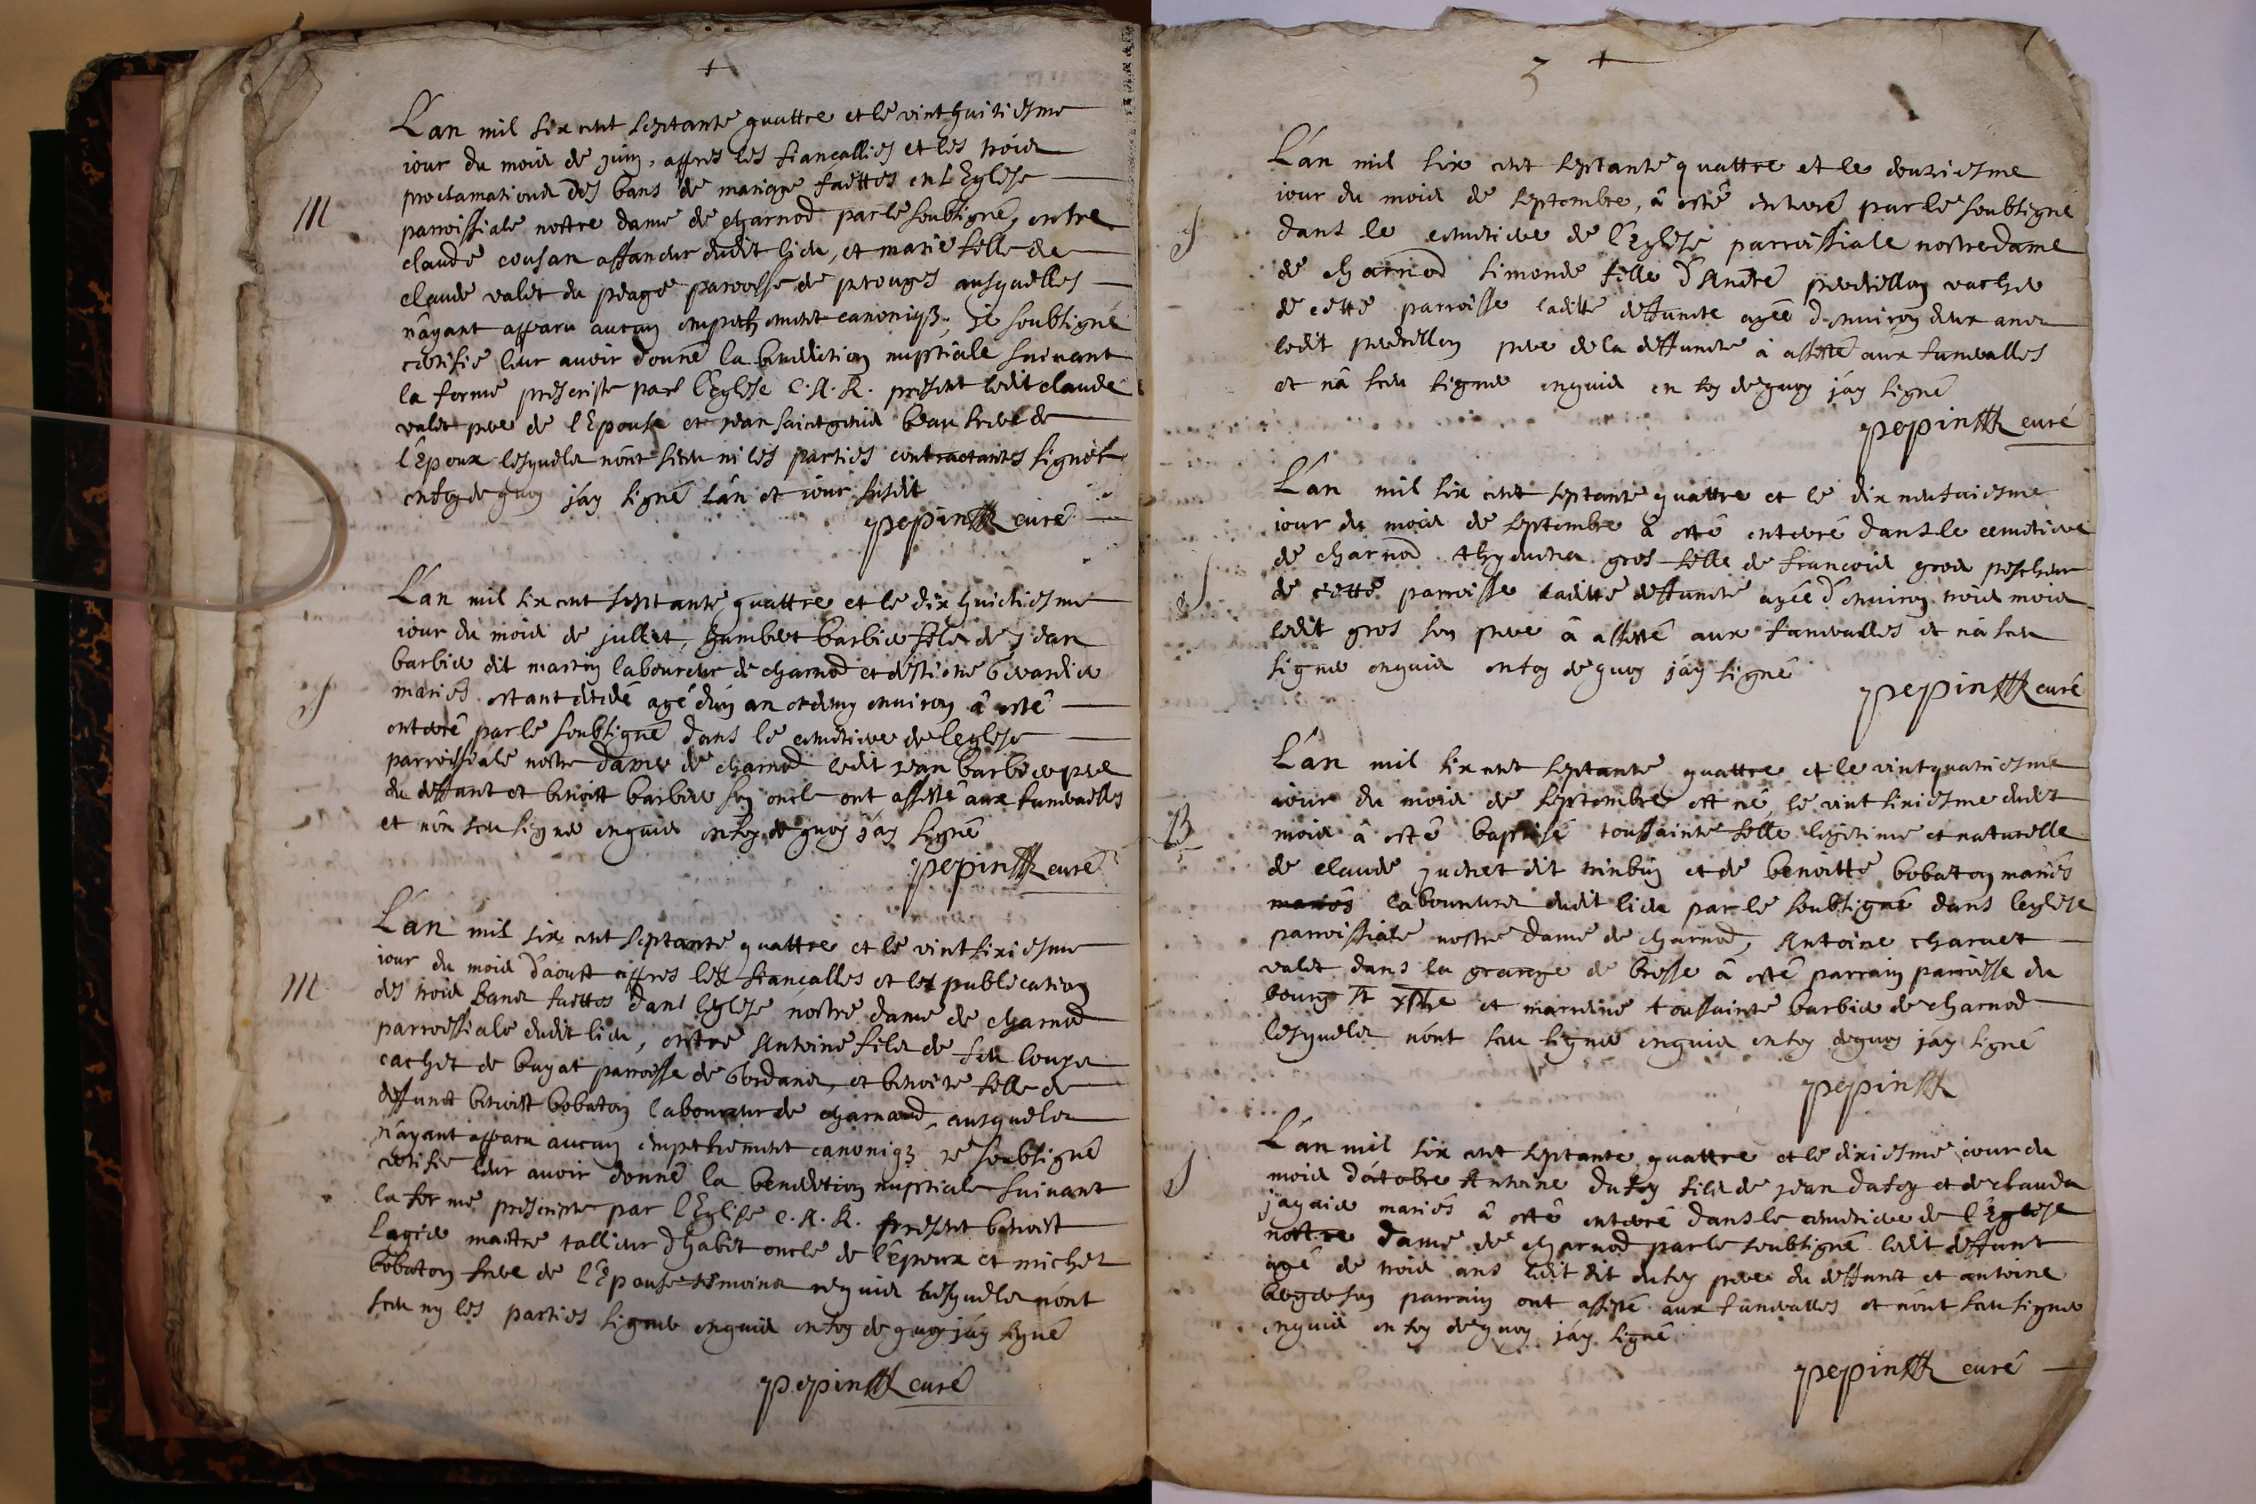 +
L'an mil six cent septante quattre et le vint huitiesme
iour du mois de juin, appres les fiancallies et les trois
proclamations des bans de mariage faittes en l'Eglise
M
parroissiale nostre dame de charnod par le soubsigné, entre
claude cousan affaneur dudit lieu, et marie fille de
claude valet du peage parroisse de perouges ausquelles
n'ayant apparu aucun empechement canoniq3, Je soubsigné
certifie leur avoir donné la benediction nuptiale suivant
la forme prescripte par l'Eglise C. A. R. present ledit claude
valet pere de l'Epouse et jean saintgenis beau frere de
l'Epoux lesquels n'ont sceu ni les parties contractantes signer
en foy de quoy j'ay signé l'an et iour susdit
pepin curé
L'an mil six cent septante quattre et le dix huictiesme
iour du mois de jullet, humbert barbier fils de jean
barbier dit martin laboureur de charnod et d'estienne
S
mariés estant decedé agé d'un an et demy environ â esté
enterré par le soubsigné dans le cemetiere de leglise
parroissiale nostre dame de charnod ledit jean barbier pere
du deffunt et benoist barbier son oncle ont assisté aux funerailles
et n'ôn sceu signer enquis en foy de quoy j'ay signé
pepin curé
L'an mil six cent septante quattre et le vint sixiesme
iour du mois d'aoust appres les fiancalles et les publication
M
des trois bans faittes dans leglise nostre dame de charnod
parroissiale dudit lieu, entre Antoine fils de feu louys
cachet de buyat parroisse de et benoite fille de
deffunct benoist bobaton laboureur de charnod, ausquels
n'ayant apparu aucun empechement canoniq3 je soubsigné
certifie leur avoir donné la benediction nuptiale suivant
la forme prescripte par l'Eglise C. A. R. present benoist
lagier maitre tallieur d'habit oncle de l'époux et michel
bobaton frere de l'Epouse témoins requis lesquels n'ont
sceu ny les parties signer enquis en foy de quoy j'ay signé
pepin curé
3 +
L'an mil six cent septante quattre et le douziesme
iour du mois de septembre, â esté enterré par le soubsigné
S
dans le cemetiere de l'Eglise parroissiale nostre dame
de charnod simonde fille d'André perdrillon vacher
de cette parroisse laditte deffuncte agée d'environ deux ans
ledit perdrillon pere de la deffuncte â assisté aux funeralles
et n'â sceu signer enquis en foy de quoy j'ay signé
pepin curé
L'an mil six cent septante quattre et le dix neufuiesme
iour du mois de septembre â esté enterré dans le cemetiere
S
de charnod gros fille de francois gros pescheur
de cette parroisse laditte deffuncte agée d'environ trois mois
ledit gros son pere â assisté aux funeralles et n'â sceu
signer enquis en foy de quoy j'ay signé
pepin curé
L'an mil six cent septante quattre et le vint quatriesme
iour du mois de septembre est né, le vint sixiesme dudit
B
mois â esté baptisé toussainte fille legitime et naturelle
de claude juenet dit trinbin et de benoitte bobaton mariés
mariés laboureurs dudit lieu par le soubsigné dans leglise
parroissiale nostre dame de charnod, Antoine charvet
valet dans la grange de brosse â esté parrain parroisse du
bourg St xphe et marreine toussainte barbier de charnod
lesquels n'ont sceu signer enquis en foy dequoy j'ay signé
pepin
L'an mil six cent septante quattre et le dixiesme iour du
S
mois d'octobre Antoine dufoy fils de jean dufoy et de clauda
jayais mariés â esté enterré dans le cemetiere de l'Eglise
nostre dame de charnod par le soubsigné ledit deffunt
agé de trois ans ledit dit dufoy pere du deffunct et antoine
son parrain ont assisté aux funeralles et n'ont sceu signer
enquis en foy de quoy j'ay signé
pepin curé